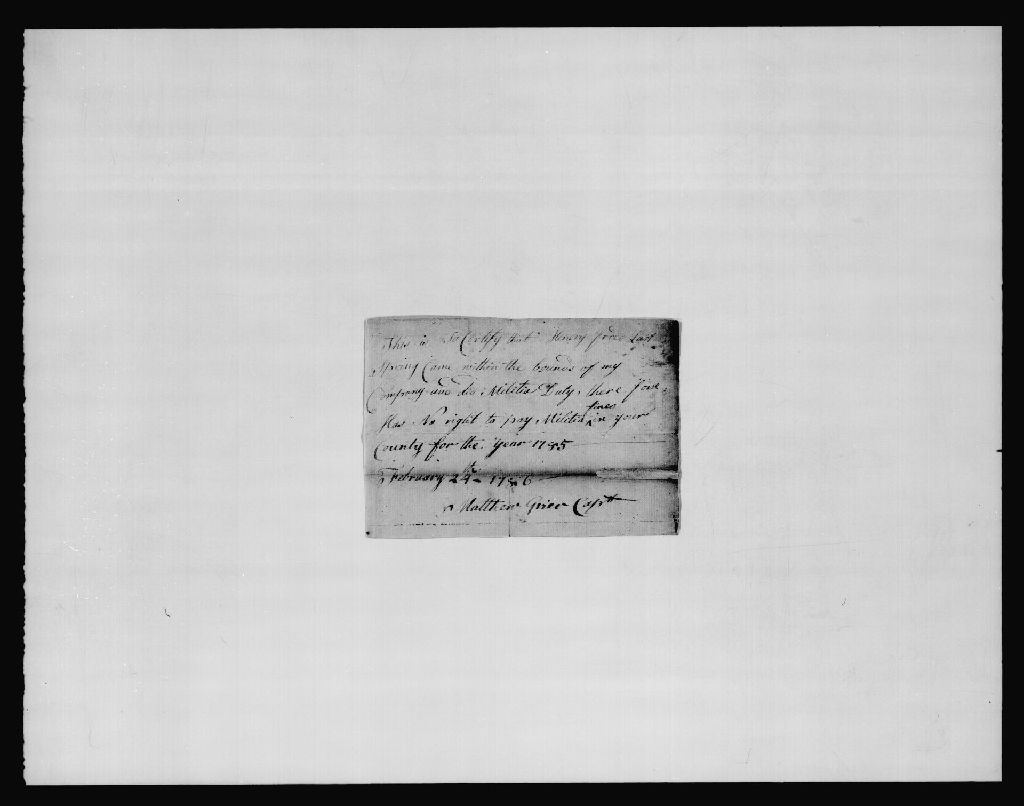 This is To Certify that Henry last
Spring Came within the bounds of my
Company and did Militia Duty, there fore
Has No right to pay Militia fines in your
County for the year 1785
February 24th 1786
Matthew Grier Capt